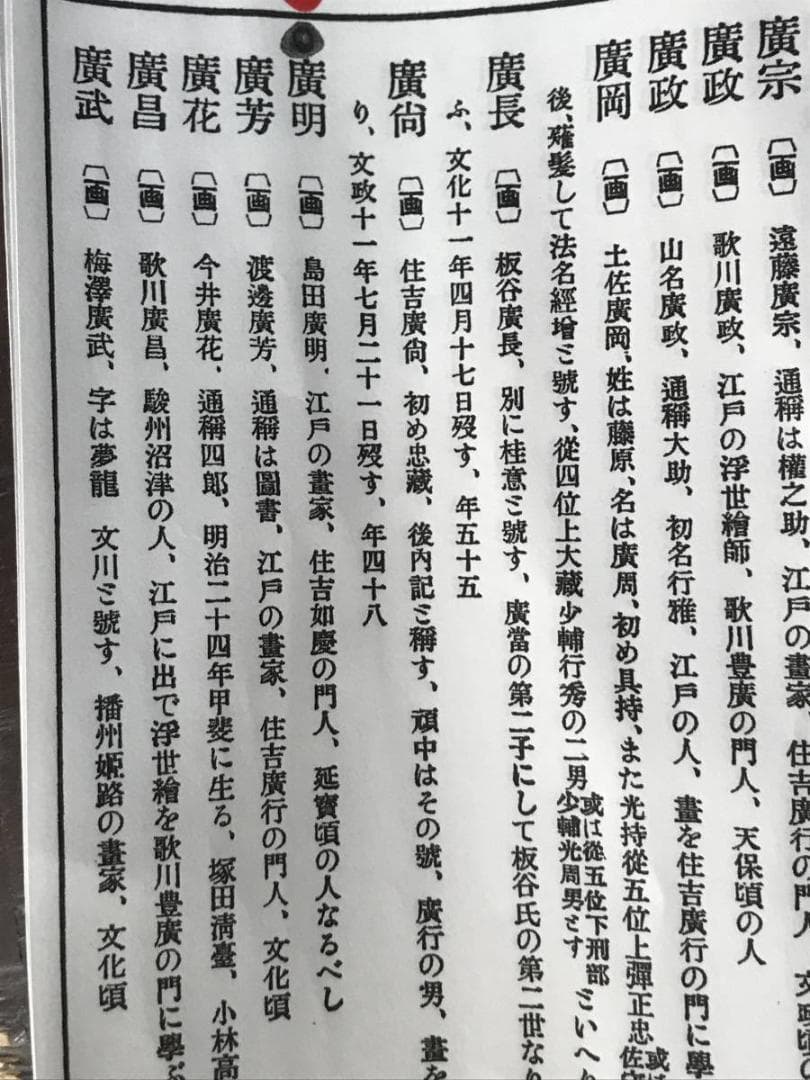 廣宗〔画〕遠藤廣宗、通稱は權之助、江戸の畫家、住吉廣行の門人、文政頃の
廣政〔画〕歌川廣政、江戸の浮世繪師、歌川豊廣の門人、天保頃の人
廣政〔画〕山名廣政、通稱大助、初名行雅、江戸の人、畫を住吉廣行の門に學
廣岡〔画〕土佐廣岡、姓は藤原、名は廣周、初め具持、また光持從五位上彈正忠
後、薙髮して法名經增ミ號す、從四位上大藏少輔行秀の二男或は從五位下刑部少輔光周男ミすミいへり
廣長〔画〕板谷廣長、別に桂意ミ號す、廣當の第二子にして板谷氏の第二世なり
ふ、文化十一年四月十七日歿す、年五十五
廣尙〔画〕住吉廣尙、初め忠藏、後內記ミ稱す、頑中はその號、廣行の男、畫を
り、文政十一年七月二十一日歿す、年四十八
廣明〔画〕島田廣明、江戸の畫家、住吉如慶の門人、延寶頃の人なるべし
廣芳〔画〕渡邊廣芳、通稱は圖書、江戸の畫家、住吉廣行の門人、文化頃
廣花〔画〕今井廣花、通稱四郎、明治二十四年甲斐に生る、塚田淸臺、小林高
廣昌〔画〕歌川廣昌、駿州沼津の人、江戸に出で浮世繪を歌川豊廣の門に學ぶ
廣武〔画〕梅澤廣武、字は夢龍 文川ミ號す、播州姬路の畫家、文化頃